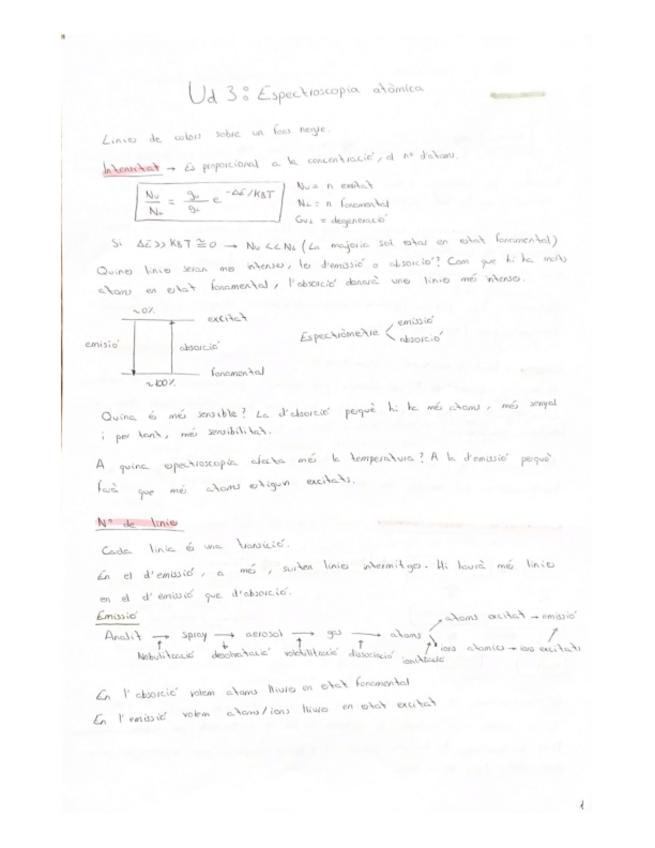 Ud 3: Espectroscopia atòmica
Línies de colors sobre un fons negre.
Intensitat → És proporcional a la concentració, al nº d'àtoms.
Nu/NL = gu/gL e^-ΔE/KBT
Nu = n excitat
NL = n fonamental
Gu,L = degeneració
Si ΔE >> KBT ≅ 0 → Nu << NL (La majoria sol estar en estat fonamental)
Quines línies seran més intenses, les d'emissió o absorció? Com que hi ha molts
àtoms en estat fonamental, l'absorció donarà unes línies més intenses.
~0%
excitat
emisió
absorció
fonamental
~100%
Espectròmetre
emissió
absorció
Quina és més sensible? La d'absorció perquè hi ha més àtoms, més senyal
i per tant, més sensibilitat.
A quina espectroscopia afecta més la temperatura? A la d'emissió perquè
farà que més àtoms estiguin excitats.
Nº de línies
Cada línia és una transició.
En el d'emissió, a més, surten línies intermitges. Hi haurà més línies
en el d'emissió que d'absorció.
Emissió
Analit → spray → aerosol → gas → àtoms
àtoms excitat → emissió
ions atòmics → ions excitats
Nebulització desolvatació volatilització dissociació ionització
En l'absorció volem àtoms lliures en estat fonamental
En l'emissió volem àtoms/ions lliures en estat excitat
1